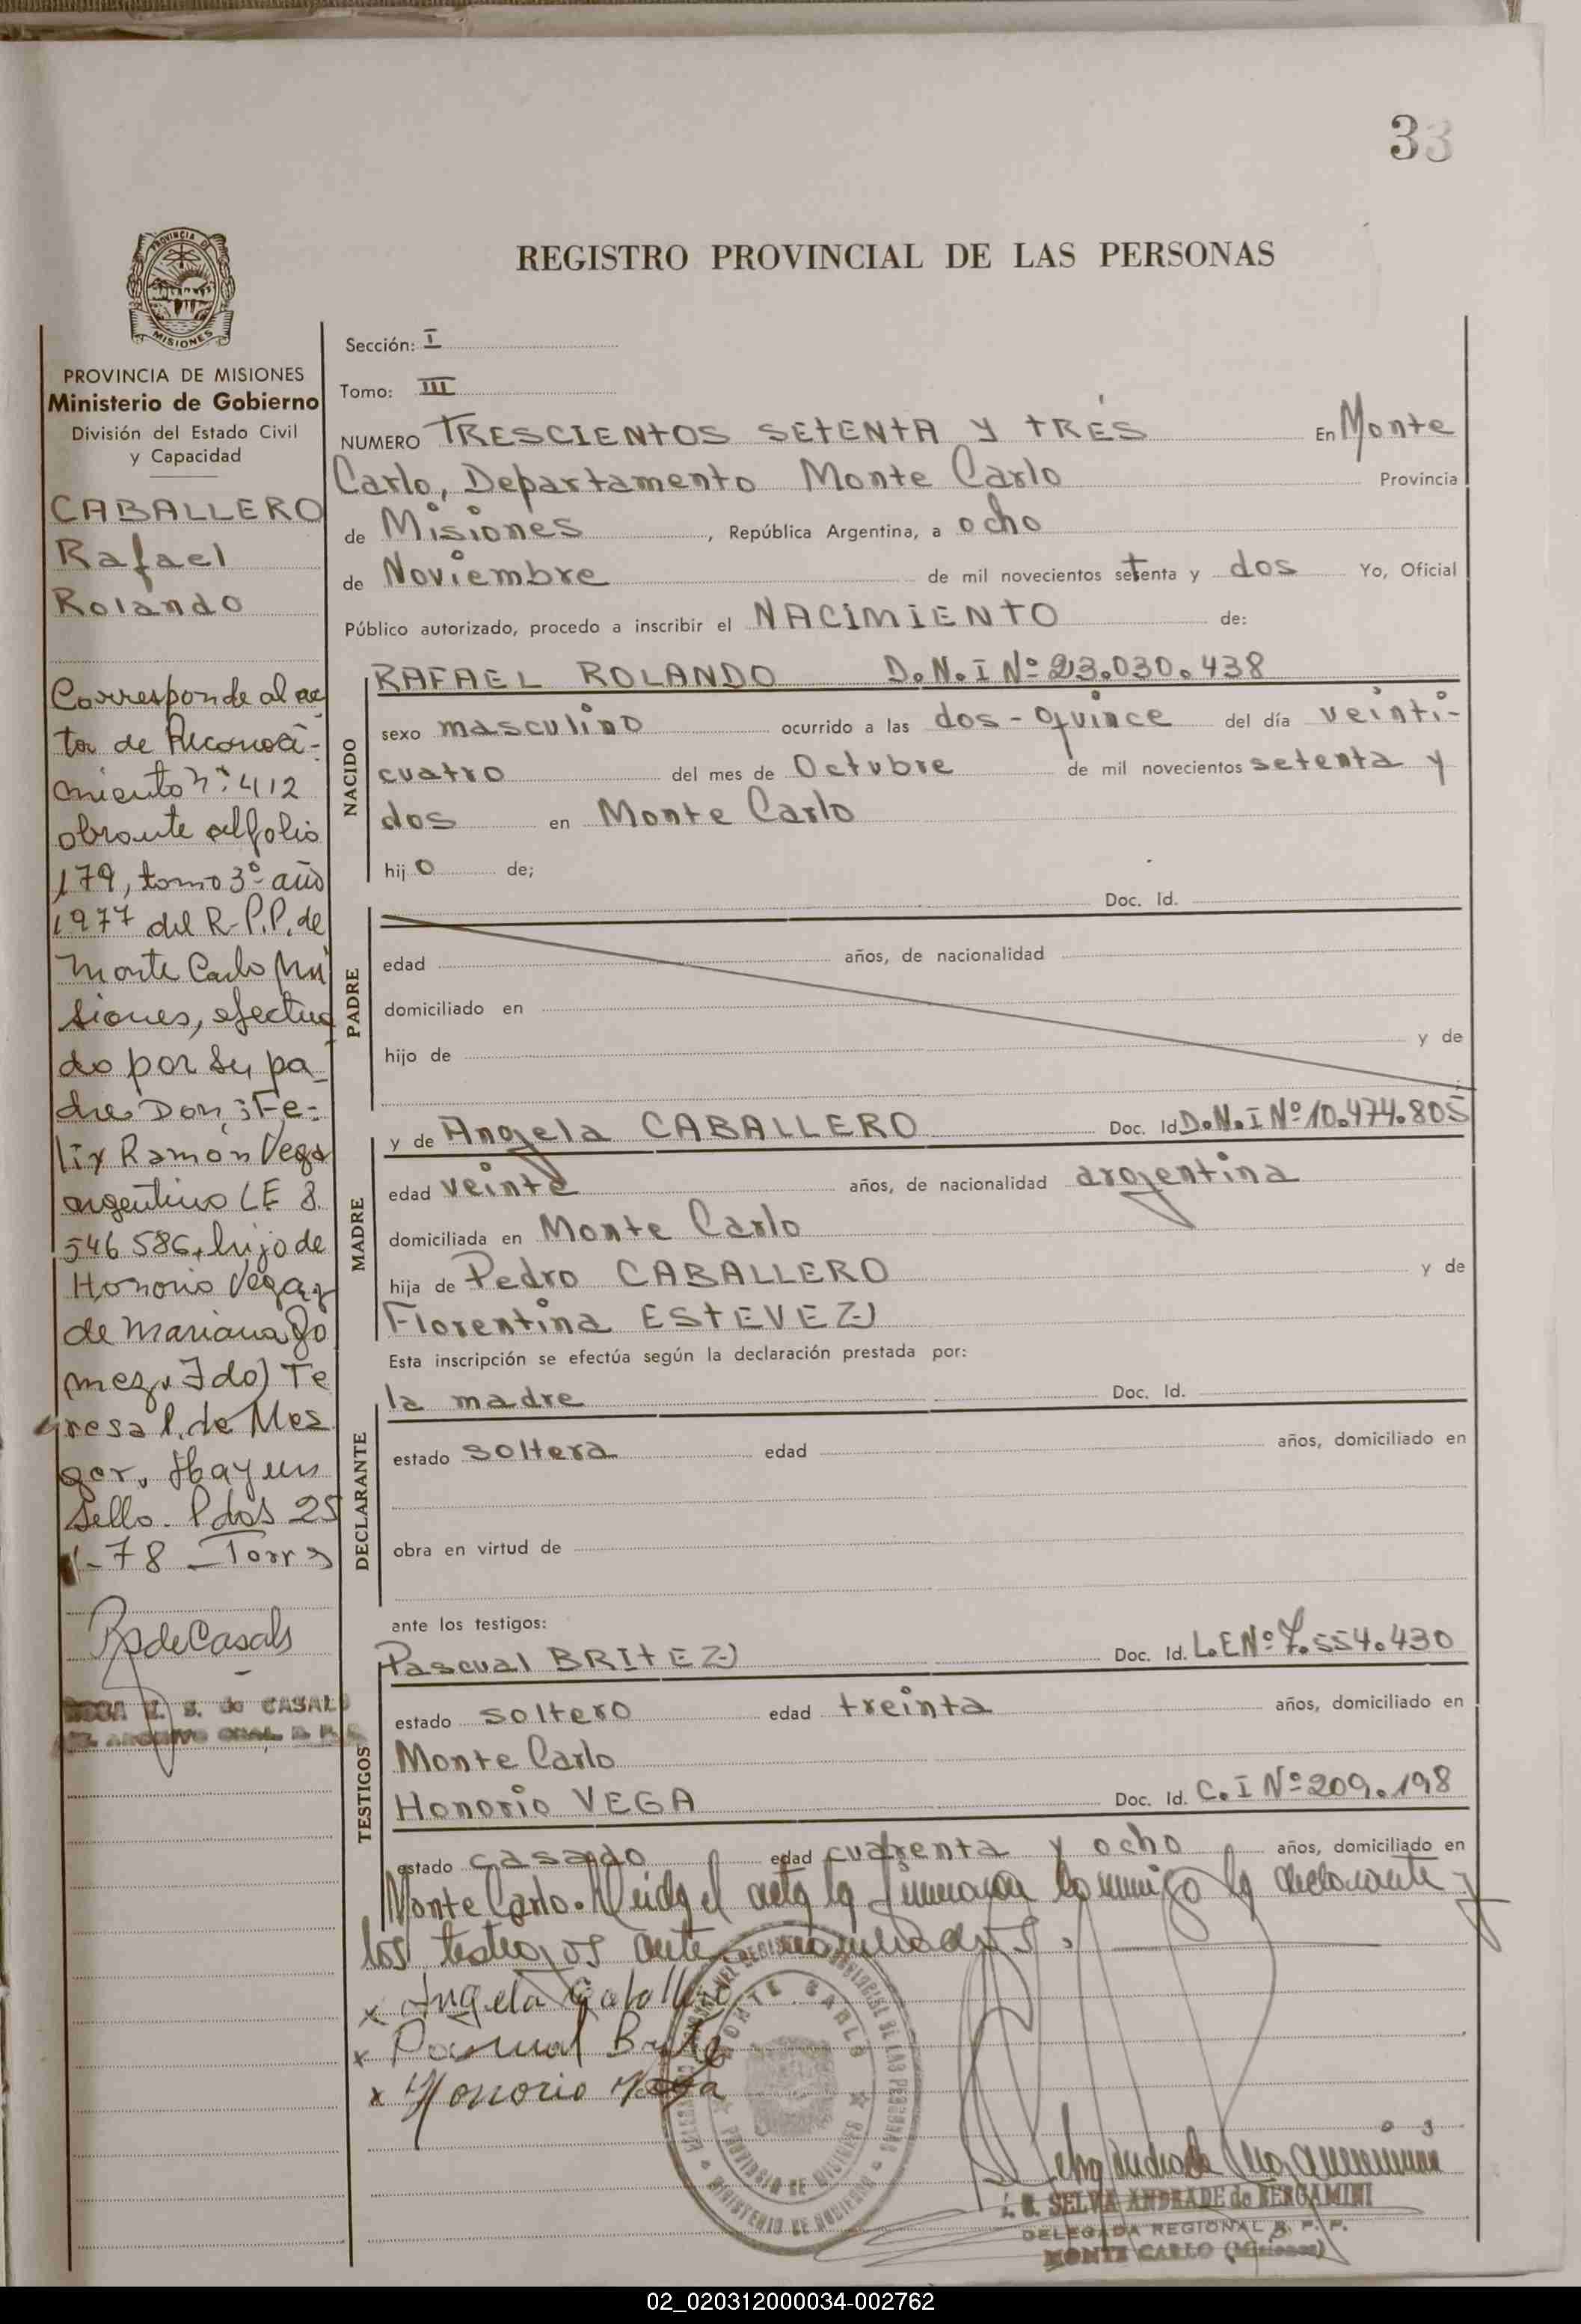 33
REGISTRO PROVINCIAL DE LAS PERSONAS
PROVINCIA DE
MISIONES
PROVINCIA DE MISIONES
Ministerio de Gobierno
División del Estado Civil
y Capacidad
CABALLERO
Rafael
Rolando
Corresponde al ac
ta de Reconoci-
miento nº 412
obrante al folio
179, tomo 3º año
1977 del R.P.P. de
Monte Carlo Mi
siones, efectua
do por su pa-
dre Don: Fe-
lix Ramón Vega
argentino LE 8.
546 586, hijo de
Honorio Vega y
de Mariana Go
mez. Fdo) Te
resa P. de Mez
ger. Hay un
sello. Pdas 25
-78 - Torres
R de Casals
S. de CASALS
Sección: I
Tomo: III
NUMERO TRESCIENTOS SETENTA Y TRES En Monte
Carlo, Departamento Monte Carlo Provincia
de Misiones, República Argentina, a ocho
de Noviembre de mil novecientos setenta y dos Yo, Oficial
Público autorizado, procedo a inscribir el NACIMIENTO de:
NACIDO
RAFAEL ROLANDO D.N.I Nº 23.030.438
sexo masculino ocurrido a las dos - quince del día veinti-
cuatro del mes de Octubre de mil novecientos setenta y
dos en Monte Carlo
hijo de;
PADRE
Doc. Id.
edad años, de nacionalidad
domiciliado en
hijo de y de
MADRE
y de Angela CABALLERO Doc. Id D.N.I Nº 10.474.805
edad veinte años, de nacionalidad argentina
domiciliada en Monte Carlo
hija de Pedro CABALLERO y de
Florentina ESTEVEZ)
Esta inscripción se efectúa según la declaración prestada por:
DECLARANTE
la madre Doc. Id.
estado soltera edad años, domiciliado en
obra en virtud de
ante los testigos:
TESTIGOS
Pascual BRITEZ) Doc. Id. L.E Nº 7.554.430
estado soltero edad treinta años, domiciliado en
Monte Carlo
Honorio VEGA Doc. Id. C.I Nº 209.198
estado casado edad cuarenta y ocho años, domiciliado en
Monte Carlo. Leida el acta la firmaron conmigo la declarante y
los testigos ante nombrados.
x Angela Caballero
x Pascual Britez
x Honorio Vega
MONTE CARLO
PROVINCIA DE MISIONES
MINISTERIO DE GOBIERNO
SELVA ANDRADE de BERGAMINI
DELEGADA REGIONAL R. P. P.
MONTE CARLO (Misiones)
02_020312000034-002762